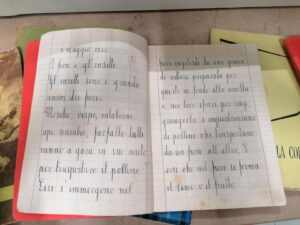 9 maggio 1962
I fiori e gli insetti
Gli insetti sono i grandi
amici dei fiori.
Mosche, vespe, calabroni,
api, scarabei, farfalle tutti
vanno a gara in suo aiuto
per trasportare il polline.
Essi s'immergono nel
fiore ingolositi da una goccia
di nettare preparata per
questo in fondo alla corolla
e nei loro sforzi per rag
giungerla s'impolverano
di polline che trasportano
da un fiore all'altro. È
così che nel fiore si forma
il seme e il frutto.
LA CO